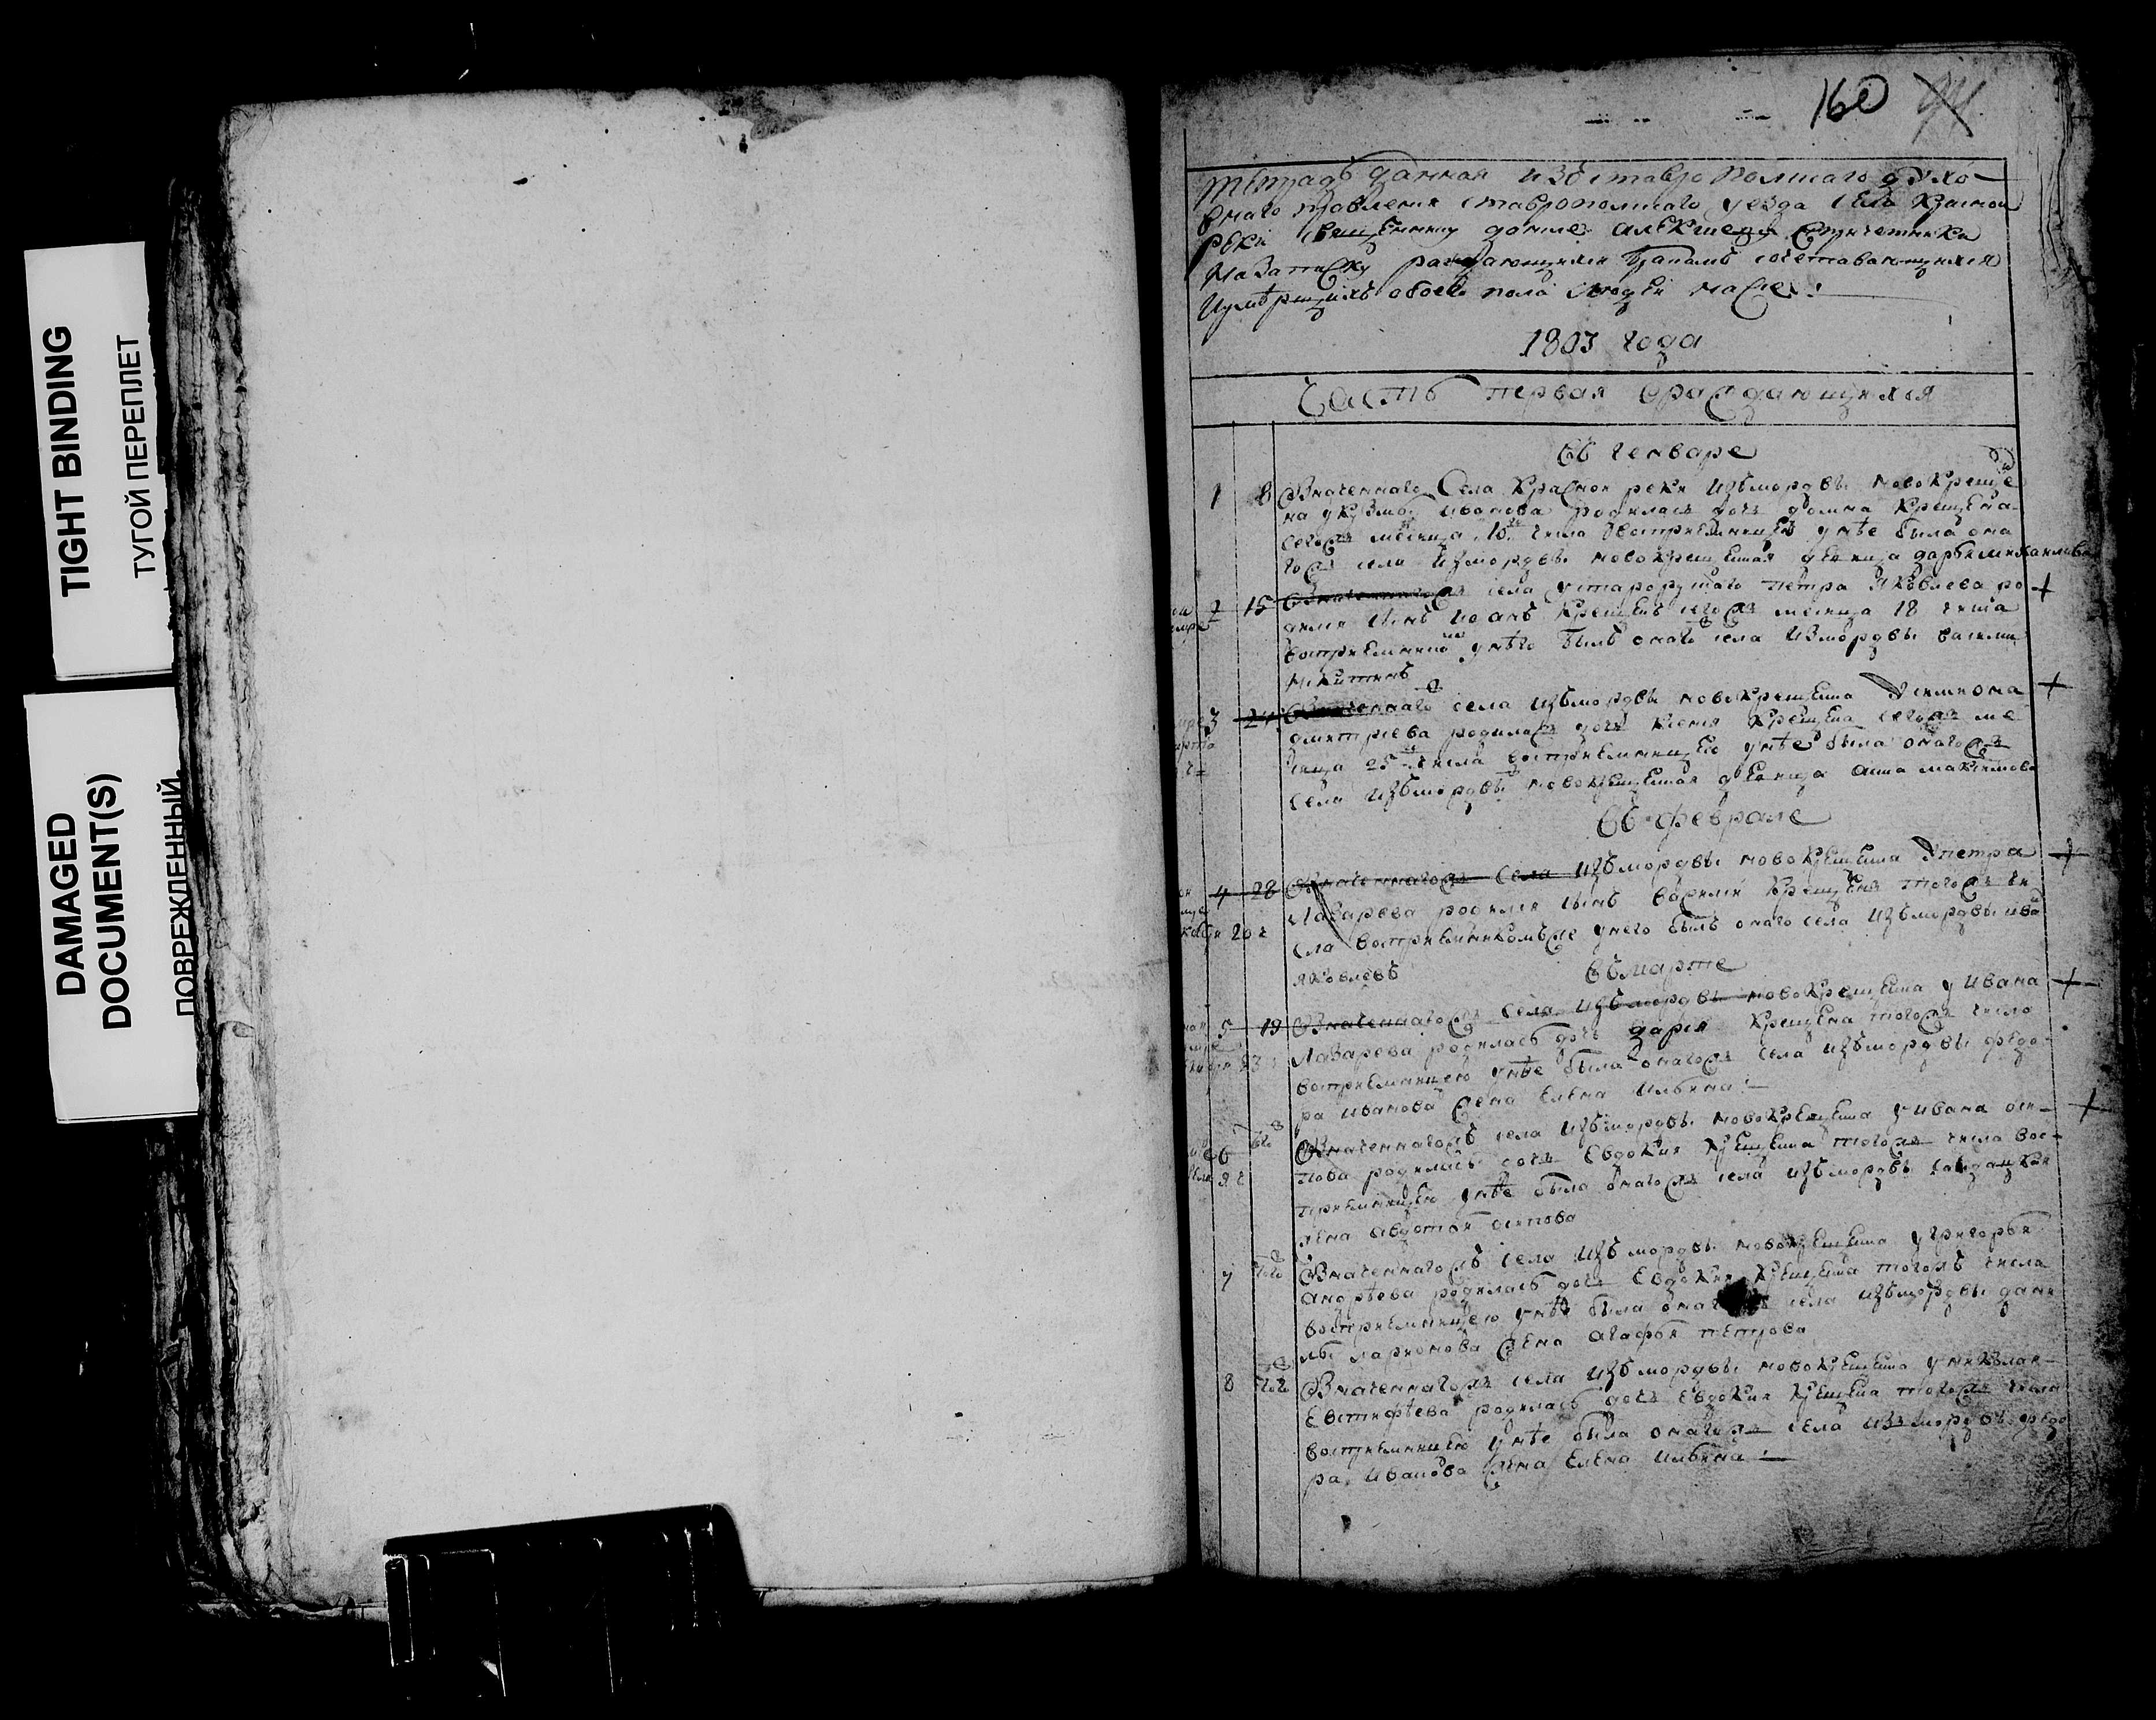 TIGHT BINDING
ТУГОЙ ПЕРЕПЛЕТ
DAMAGED
DOCUMENT(S)
ПОВРЕЖДЕННЫЙ
160
тетрадь данная изъ ставропольскаго духо-
внаго правления ставропольскаго уезда села красной
реки священнику данилѣ алексееву спричетники
на записку раждающихся бракомъ сочетавающихся
иумѣрщихъ обоего пола людей насей
1803 года
Часть первая ораждающихся
Въ генваре
1 8 Значеннаго села красной реки изъ мордвы новокреще
на укузмы иванова родилась дочь домна крещена
сегожъ месяца 10 числа восприемницею унѣе была она
гожъ села измордвы новокрещеная девица дарья
2 15 Значеннагожъ села устарорускаго петра яковлева ро
дился сынъ иоанъ крещенъ сегожъ месяца 18 числа
восприемникомъ унѣго былъ онаго села измордвы василии
никитинъ
3 24 Значеннаго села изъмордвы новокрещена усимиона
дмитриева родилась дочь ксения крещена сегожъ ме
сяца 25 числа восприемницею унѣе была онагожъ
села изъмордвы новокрещеная девица анна максимова
Въ феврале
4 28 Значеннагожъ села изъмордвы новокрещена упетра
лазарева родился сынъ василий крещенъ тогожъ чи
сла восприемникомъже унего былъ онаго села изъмордвы ива
яковлевъ
Въ марте
5 19 Значеннагожъ села изъмордвы новокрещена уивана
лазарева родилась дочь дария крещена тогожъ числа
восприемницею унѣе была онагожъ села изъмордвы федо
ра иванова жена елена ильина
6 того Значеннагожъ села изъмордвы новокрещена уивана оси
пова родилась дочь евдокия крещена тогожъ числа вос
приемницею унѣе была онагожъ села изъмордвы салдацкая
жена авдотья осипова
7 того Значеннагожъ села изъ мордвы новокрещена угригорья
андрѣева родилась дочь евдокия крещена тогожъ числа
восприемницею унѣе была онагожъ села изъмордвы дани
лы ларионова жена агафья петрова
8 того Значеннагожъ села изъмордвы новокрещена униколая
евстифѣева родилась дочь евдокия крещена тогожъ числа
восприемницею унѣе была онагожъ села изъ мордвы федо
ра иванова жена елена ильина